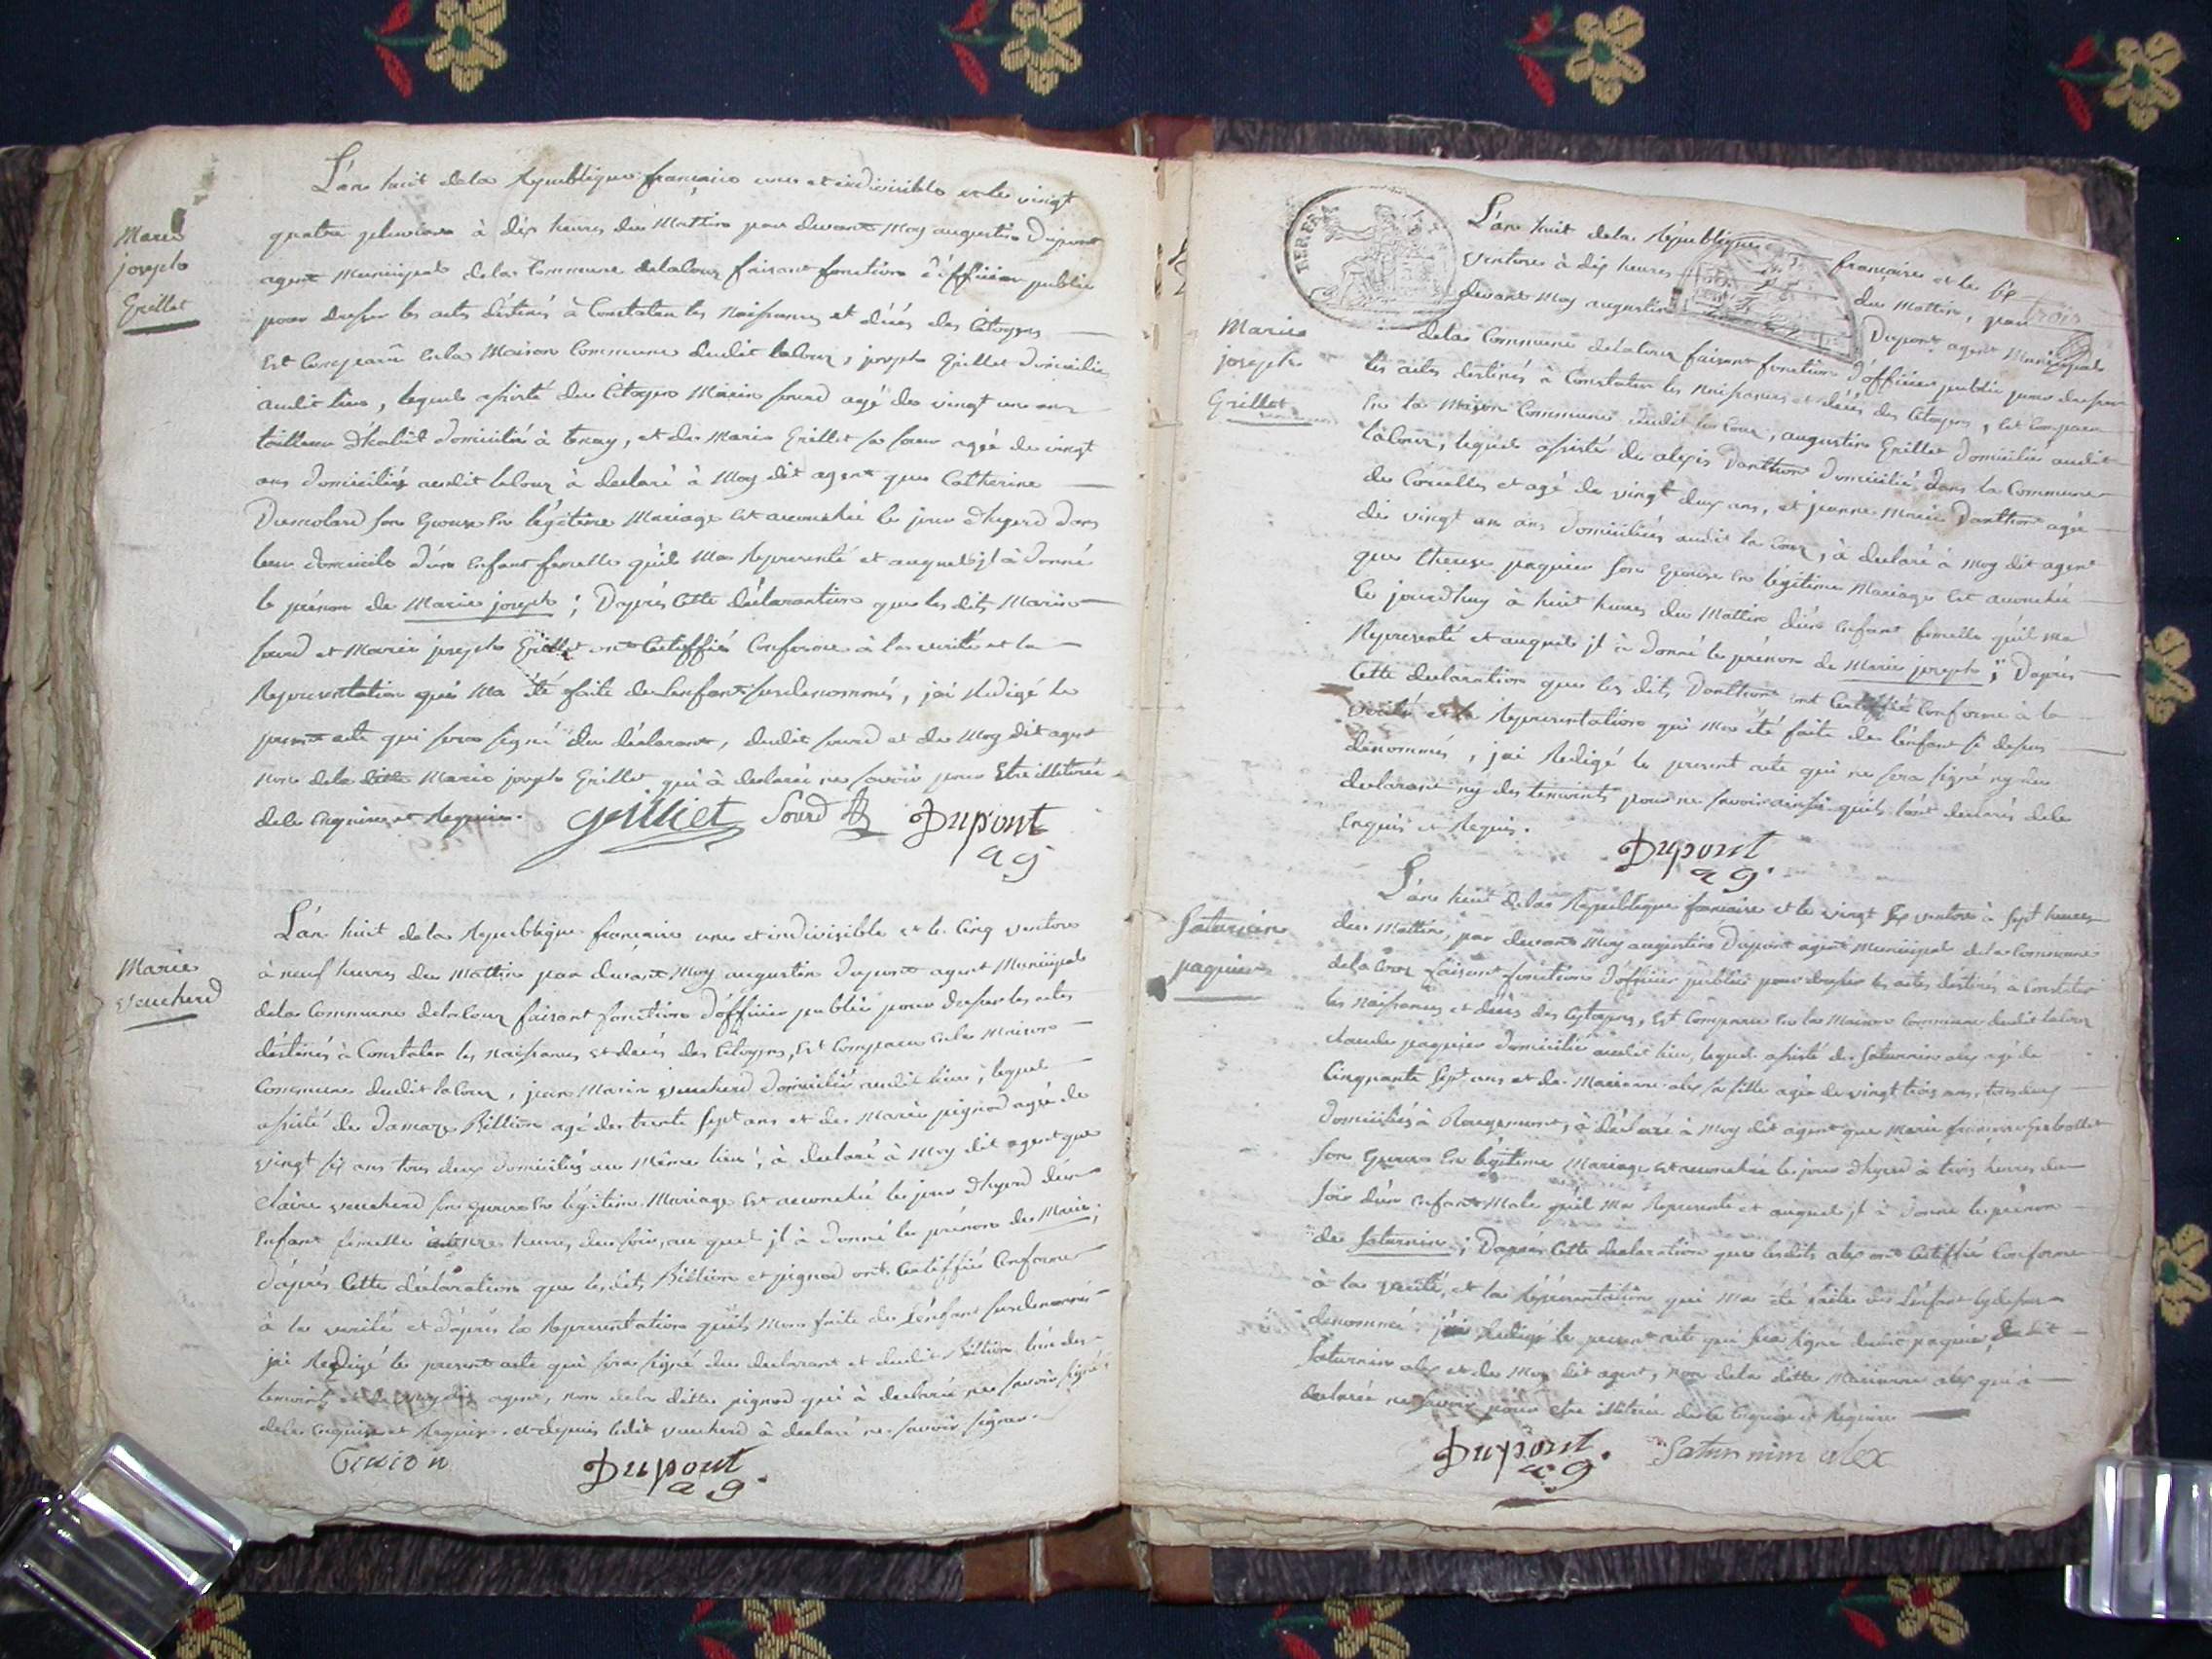 L'an huit de la Republique française une et indivisible et le vingt
Marie
joseph
Grillet
quatre pluviose à dix heures du Mattin par devant Moy augustin Dupont
agent Municipal de la Commune delacoux faisant fonction d'officier public
pour dresser les actes déstinés à Constater les Naissances et décés des Citoyens
Est Comparu En la Maison Commune dudit lacoux, joseph Grillet domicilié
audit lieu, lequel assisté du Citoyen Marin sourd agé de vingt un ans
tailleur d'habit domicilié à tenay, et de Marie Grillet sa soeur agée de vingt
ans domiciliés audit lacoux à declaré à Moy dit agent que Catherine
Dumolard son Epouse En légitime Mariage Est accouchée le jour d'hyerd dans
leur domicile d'un Enfant femelle qu'il Ma Representé et auquel jl à donné
le prénom de Marie joseph ; D'aprés Cette déclaration que les dits Marin
sourd et Marie joseph Grillet ont Certiffié Conforme à la verité et la
Representation qui Ma été faite de lenfant susdenommé, jai Redigé le
present acte qui sera signé du déclarant, dudit sourd et de Moy dit agent
non de la ditte Marie joseph Grillet qui à declarée ne savoir pour Etre illiterée
de ce Enquise et Requise.
Grilliet Sourd Dupont
ag
L'an huit de la Republique francaise une et indivisible et le Cinq ventose
Marie
Vucherd
à neuf heures du Mattin par devant Moy augustin dupont agent Municipal
de la Commune delacoux faisant fonction d'officier public pour dresser les actes
déstinés à Constater les Naissances et decés des Citoyens, Est Comparu En la Maison
Commune dudit lacoux, jean Marin vucherd domicilié audit lieu, lequel
assisté de Damaze Billion agé des trente sept ans et de Marie pignod agée de
vingt six ans tous deux domiciliés au Même lieu, à declaré à Moy dit agent que
Claire vucherd son Epouse En légitime Mariage Est accouchée le jour d'hyerd d'un
Enfant femelle heures du soir, au quel jl à donné le prénom de Marie ;
d'aprés Cette déclaration que les dits Billion et pignod ont Certiffié Conforme
à la verité et d'aprés la Representation qu'ils Mont faite de lenfant susdenommé
jai Redigé le present acte qui sera signé du declarant et dudit Billion lun des
temoins et de moy dit agent, non de la ditte pignod qui à declarée ne savoir signé
de ce Enquise et Requise. et depuis ledit vucherd à declaré ne savoir signer.
Dupont
ag
L'an huit de la République française et le six
ventose à dix heures du Mattin, par
devant Moy augustin Dupont agent Municipal
Marie
joseph
Grillet
de la Commune delacoux faisant fonction d'officier public pour dresser
les actes destinés à Constater les Naissances et décés des Citoyens, Est Comparu
En la Maison Commune dudit lacoux, augustin Grillet domicilié audit
lacoux, lequel assisté de alexis Danthon domicilié dans la Commune
de Corcelles et agé de vingt deux ans, et jeanne Marie Danthon agée
de vingt un ans domiciliées audit lacoux, à declaré à Moy dit agent
que therese paquier son Epouse En légitime Mariage Est accouchée
Ce jourd'huy à huit heures du Mattin d'un Enfant femelle qu'il Ma
Representé et auquel jl à donné le prénom de Marie joseph ; D'aprés
Cette declaration que les dits Danthon ont Certiffié Conforme à la
verité et la Representation qui Ma été faite de lenfant si desus
dénommé, jai Redigé le present acte qui ne sera signé ny du
declarant ny des temoints pour ne savoir ainsi quils lont declarés de ce
Enquis et Requis.
Dupont
ag
L'an huit de la Republique francaise et le vingt six ventose à sept heures
Saturnin
paquier
du Mattin, par devant Moy augustin Dupont agent Municipal de la Commune
delacoux faisant fonction d'officier public pour dresser les actes destinés à Constater
les Naissances et décés des Citoyens, Est Comparu En la Maison Commune dudit lacoux
claude paquier domicilié audit lieu, lequel assisté de Saturnin alex agé de
Cinquante sept ans et de Marianne alex sa fille agée de vingt trois ans, tous deux
domiciliés à Rougemont, à déclaré à Moy dit agent que Marie françoise
son Epouse En légitime Mariage Est accouchée le jour d'hyerd à trois heures du
soir d'un Enfant Male qu'il Ma Representé et auquel jl à donné le prénom
de Saturnin ; D'aprés Cette declaration que lesdits alex ont Certiffié Conforme
à la verité, et la Réprésentation qui Ma été faite de Lenfant cy desus
denommé, jai Redigé le present acte qui sera signé dudit paquier, dudit
Saturnin alex et de Moy dit agent, non de la ditte Marianne alex qui à
declarée ne savoir pour etre illiterée de ce Enquise et Requise
Dupont Saturnin alex
ag